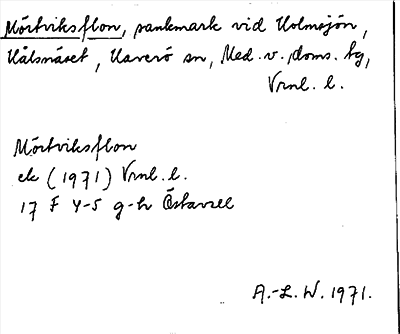 Mörtviksflon, sankmark vid Holmsjön,
Kälsnäset, Haverö sn, Med. v. doms. tg,
Vrnl. l.
Mörtviksflon
ek (1971) Vrnl. l.
17 F 4-5 g-h Östavall
A.-L. W. 1971.